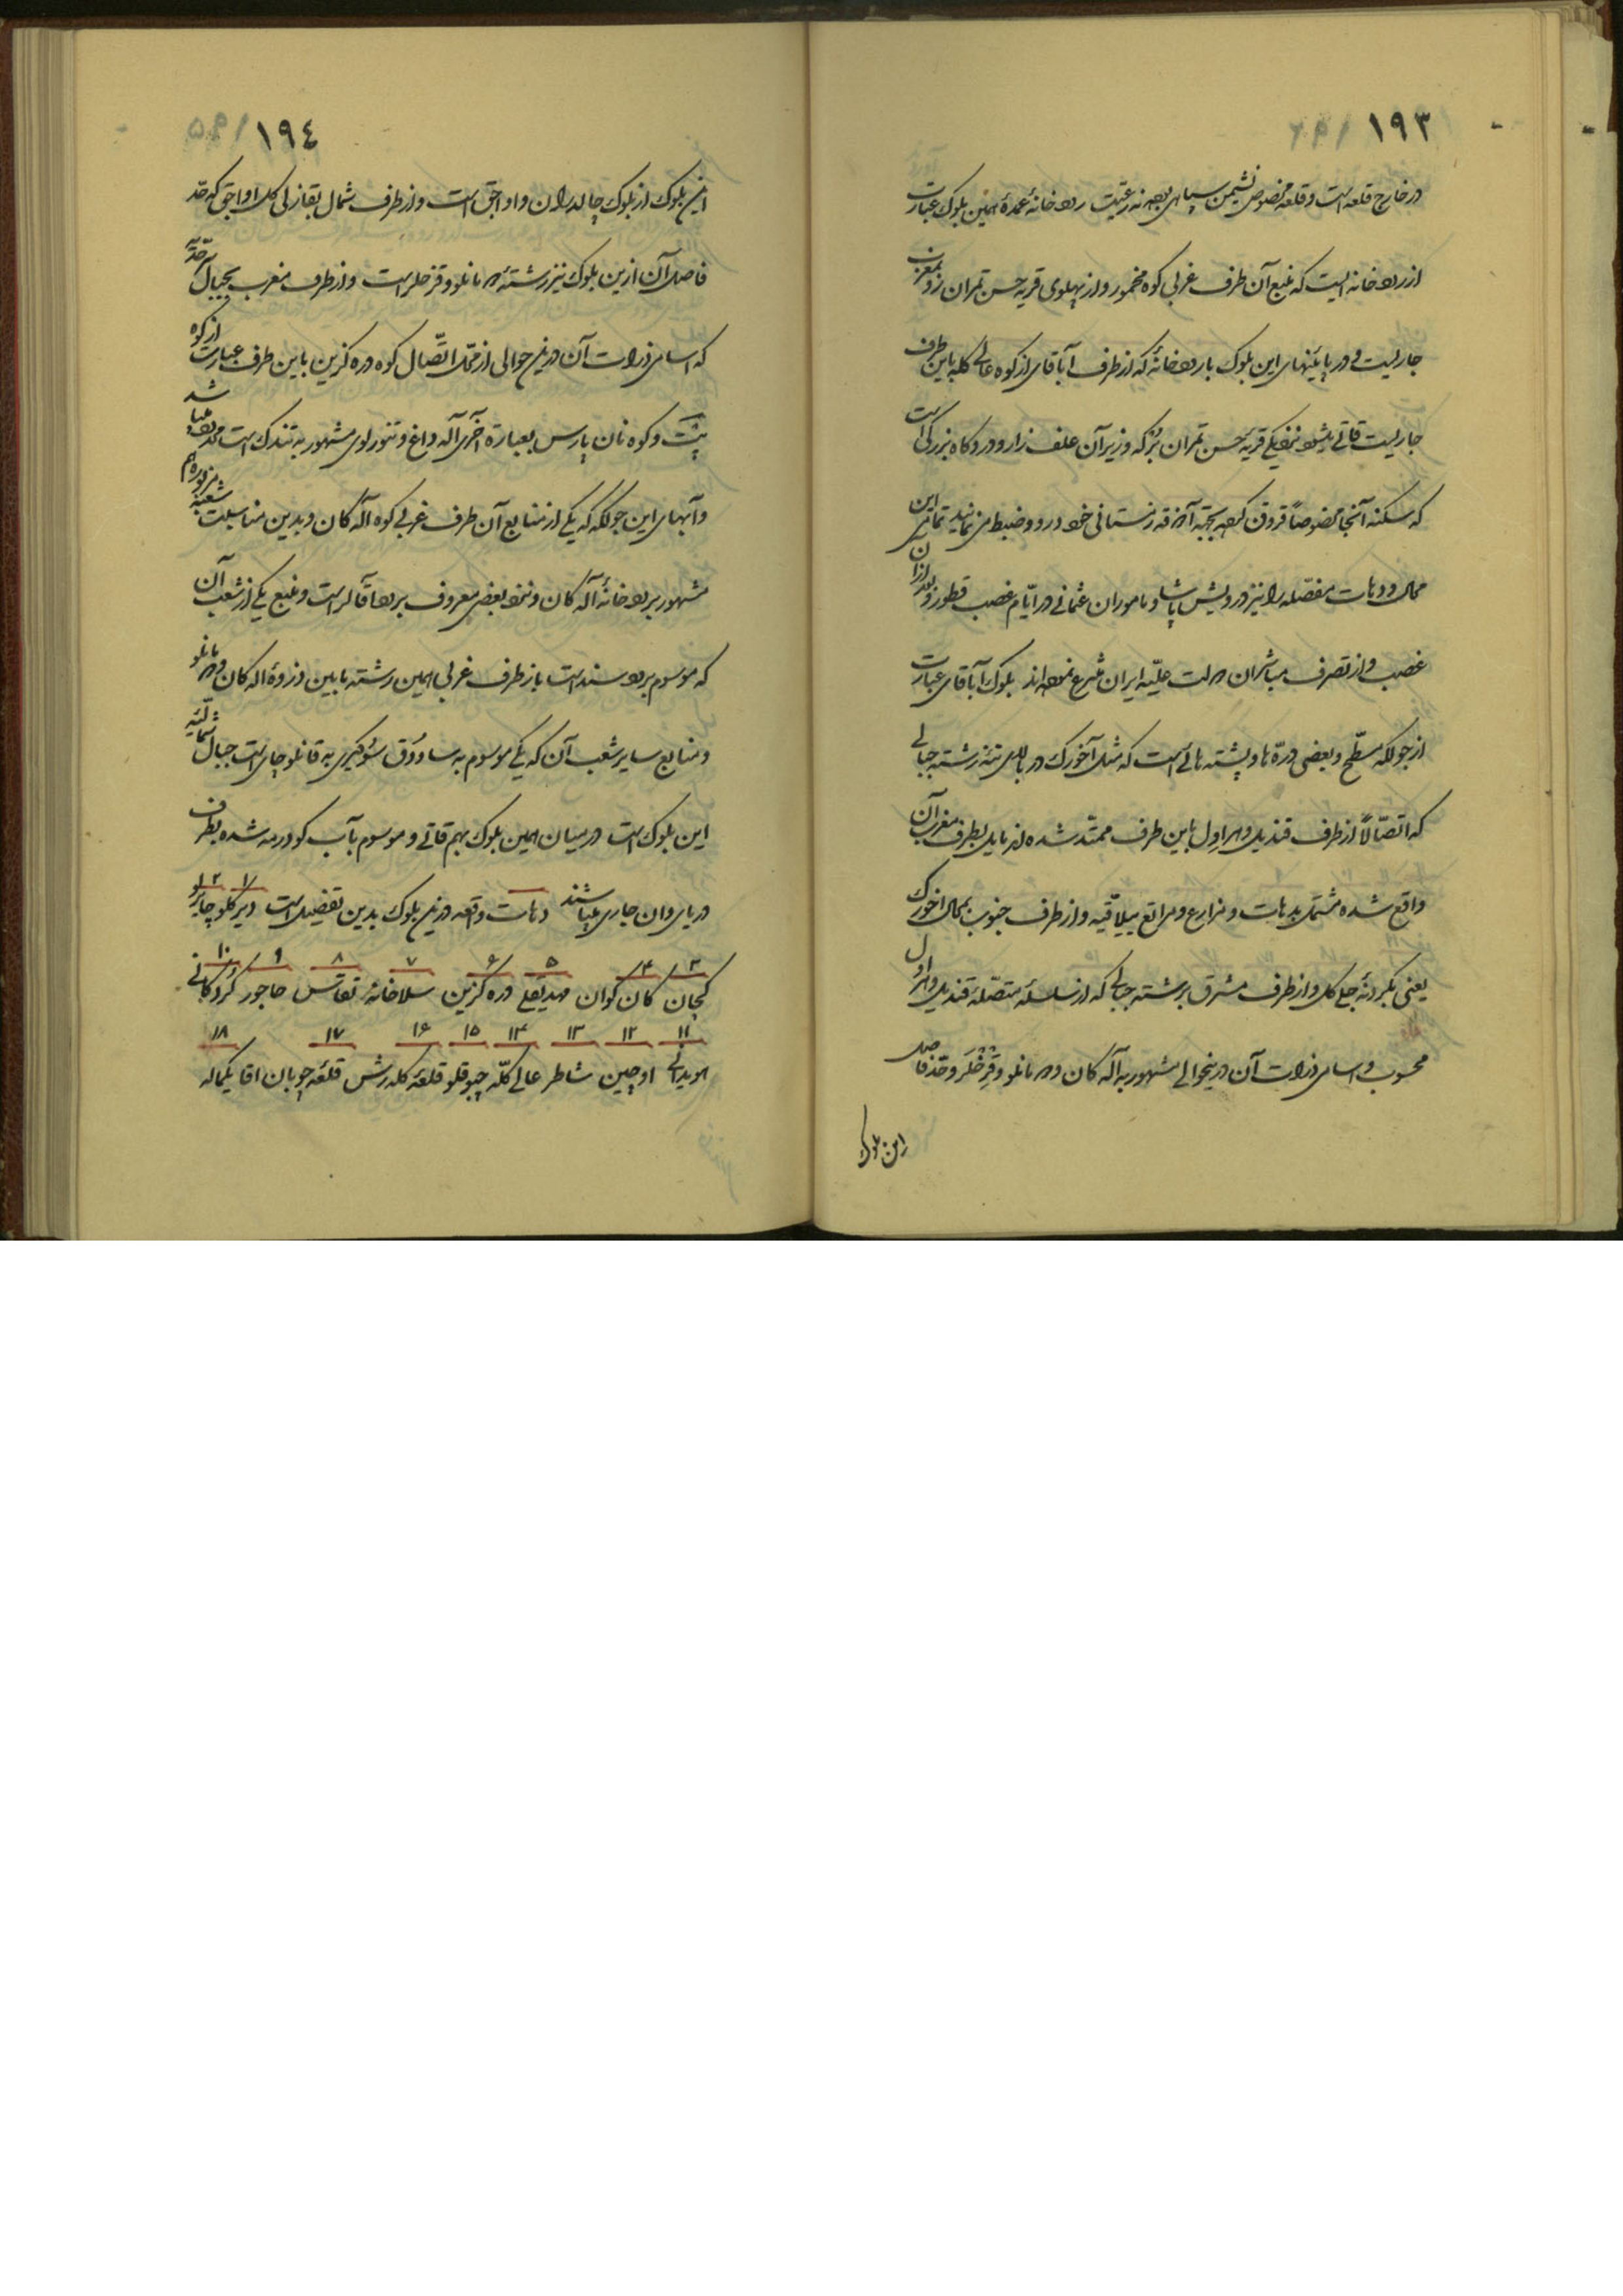 ١٩٣
در خارج قلعه است و قلعه مخصوص نشیمن سپاهی بوده نه رعیّت رودخانهٔ عمدهٔ همین بلوک عبارت
از رودخانه ایست که منبع آن طرف غربی کوه مخمور و از پهلوی قریه حسن تمران رو بمغرب
جاریست و در پائینهای این بلوک با رودخانهٔ که از طرف آباقای از کوه عالی کله باین طرف
جاریست قاتی میشود نزدیکی قریهٔ حسن تمران بُزکه و زیر آن علف زار و دروکاه بزرگی است
که سکنه آنجا مخصوصاً قروق کرده بجهة آذوقه زمستانی خود درو و ضبط می نمایند تمامی این
محال و دهات مفصّله را نیز درویش پاشا و ماموران عثمانی در ایّام غصب قطور و بعد از آن
غصب و از تصرف مباشران دولت علیّه ایران منتزع نموده اند بلوک آباقای عبارت
از جولکه مسطّح و بعضی درّه ها و پشته هائی است که مثل آخورک در بالای تنه رشته جبالی
که اتصّالاً از طرف قندیل و هراول باین طرف ممتدّ شده اند مایل بطرف مغرب آن
واقع شده مشتمل بدهات و مزارع و مراتع ییلاقیه و از طرف جنوب بمحال اخورک
یعنی بگردنهٔ چلی کل و از طرف مشرق برشته جبالی که از سلسلهٔ متصّلهٔ قندیل و هراول
محسوب و اسامی ذروات آن درینحوالی مشهور به آله کان و دمانلو و قزخلر و حدّ فاصل
این بلوک
١٩٤
این بلوک از بلوک چالدران و اواجق است و از طرف شمال بقازلی کل اواجق که حّد
فاصل آن ازین بلوک نیز رشتهٔ دمانلو و قزخلر است و از طرف مغرب بجبال حدّیّه
که اسامی ذروات آن درین حوالی از محّل اتّصال کوه دره کزین باین طرف عبارت از کوه
پنَت و کوه نان پارس بعبارة اخری آله داغ و تنورلوی مشهور به تندرک است محدود میباشد
و آبهای این جولکه که یکی از منابع آن طرف غربی کوه آله کان و بدین مناسبت شعبهٔ مزبوره هم
مشهور برودخانهٔ آله کان و نزد بعضی معروف برود آقالر است و منبع یکی از شعب آن
که موسوم برود سند است باز طرف غربی همین رشته مابین ذروهٔ اله کان و دمانلو
و منابع سایر شعب آن که یکی موسوم به ساودُق سُو دیگری به قانلو چای است جبال شمالیّهٔ
این بلوک است در میان همین بلوک بهم قاتی و موسوم بآب کودرمه شده بطرف
دریای وان جاری میباشند دهات واقعه درین بلوک بدین تفضیل است ١ دیرکلو ٢ چابرلو
٣ کچان ٤ کان کوان ٥ مهدیقلی ۶ دره کزین ٧ سلاخانه ٨ تقاتس ٩ حاجور ١٠ کردکانی
١١ هویدالی ١٢ اوچین ١٣ شاطر ١٤ عالی کلّه ١٥ چبوقلو ١۶ قلعهٔ کله رش ١٧ قلعهٔ چوبان اقا ١٨ یکماله